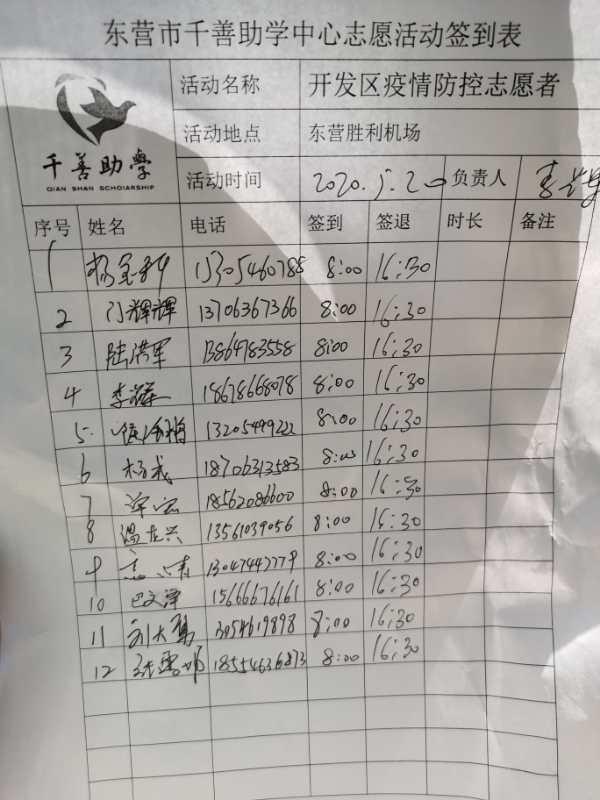 东营市千善助学中心志愿活动签到表
千善助學
QIAN SHAN SCHOLARSHIP
活动名称 开发区疫情防控志愿者
活动地点 东营胜利机场
活动时间 2020.5.20 负责人
序号 姓名 电话 签到 签退 时长 备注
1 15305460788 8:00 16:30
2 门辉辉 13706367366 8:00 16:30
3 陆洪军 13864783558 8:00 16:30
4 李 18678668078 8:00 16:30
5. 13205499222 8:00 16:30
6 杨武 18706313583 8:00 16:30
7 18562086600 8:00 16:30
8 温在兴 13561039056 8:00 16:30
9 13047442779 8:00 16:30
10 巴文泽 15666676161 8:00 16:30
11 刘大 8:00 16:30
12 张雪娜 18554636873 8:00 16:30